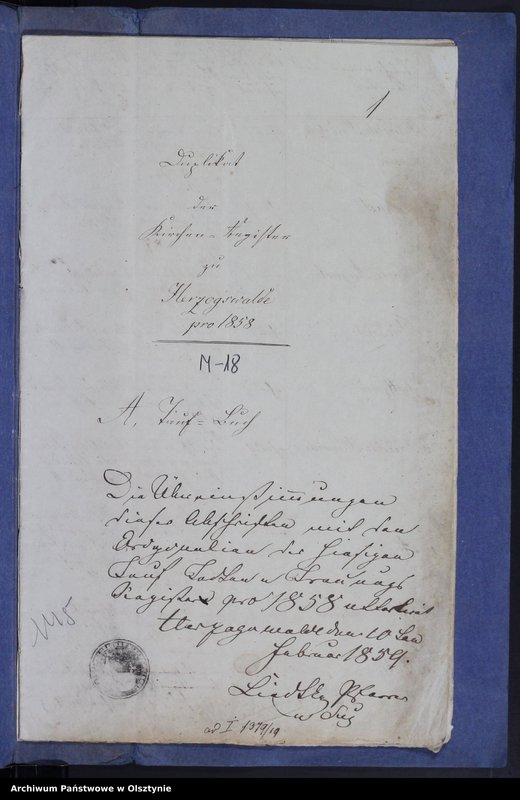 1
Duplikat
der
Kirchen-Register
zu
Herzogswalde
pro 1858
M-18
A, Tauf-Buch
Die Übereinstimmungen
dieser Abschriften mit den
Originalien der hiesigen
Tauf Todten u Trauungs
Register pro 1858
Herzogswalde den 10 ten
Februar 1859.
Pfarrer
ad I 1379/19
Archiwum Państwowe w Olsztynie